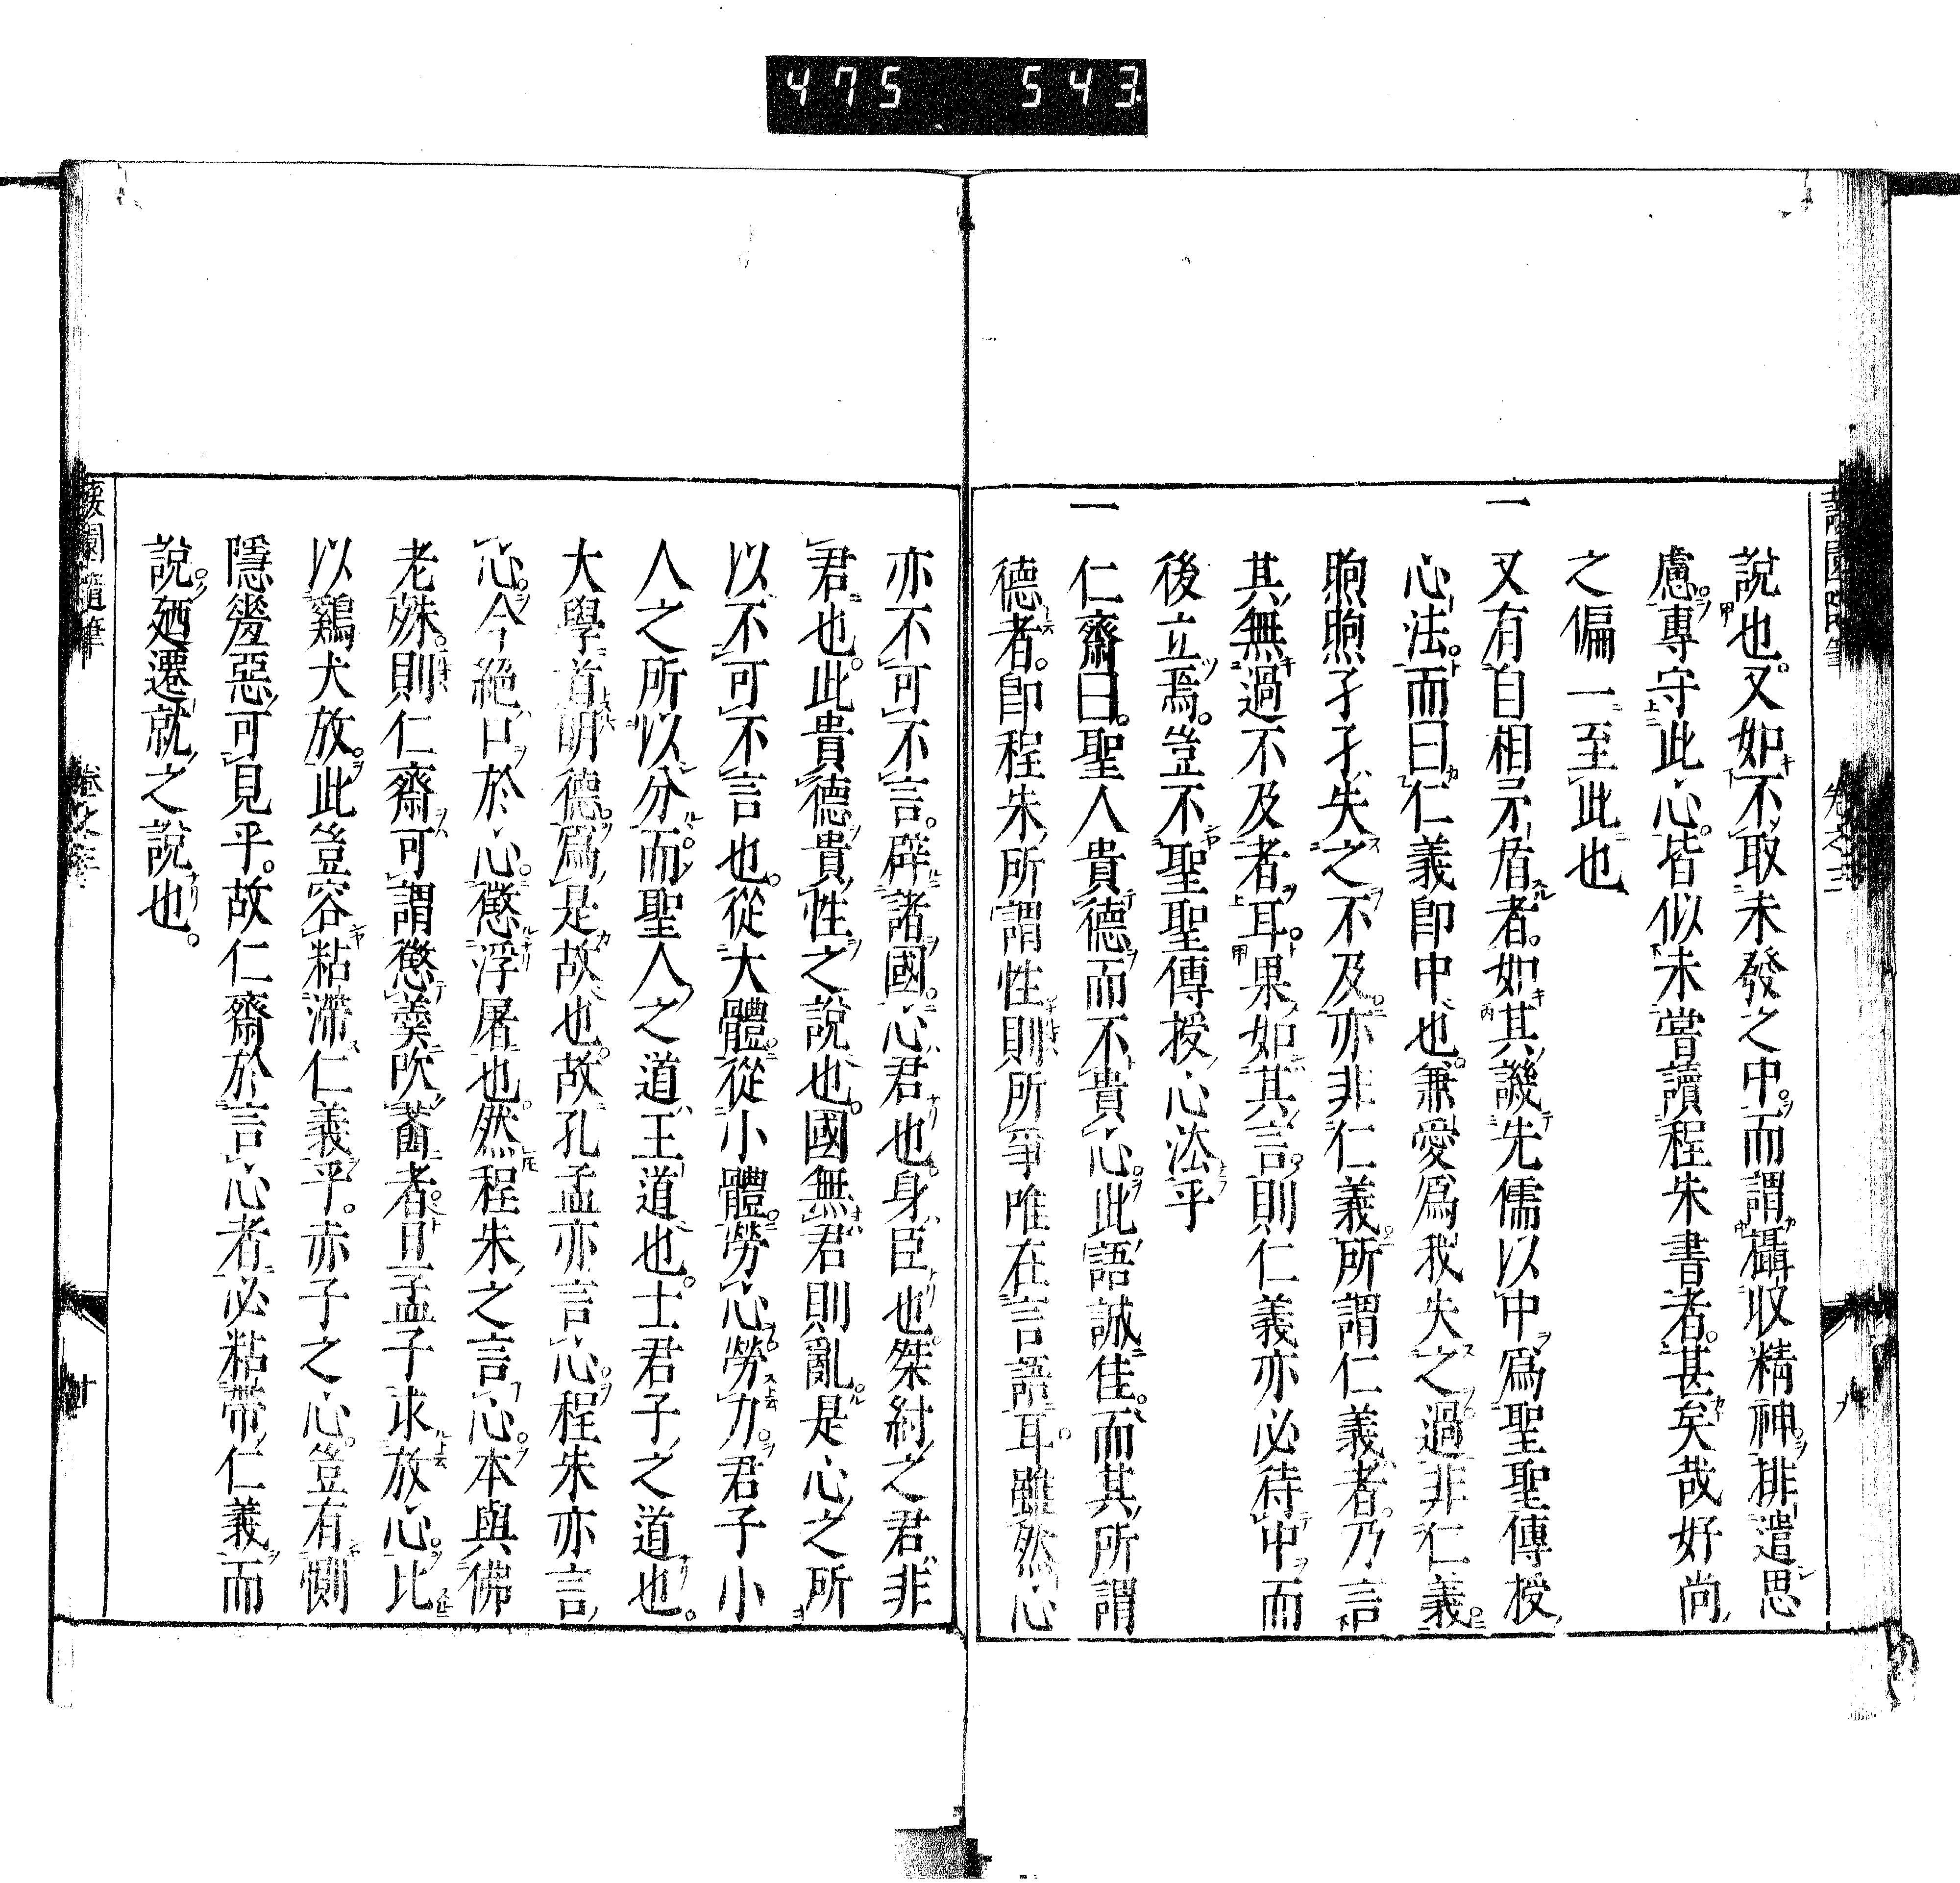 475 543
說也又如不取未發之中而謂攝收精神排遣思
慮專守此心皆似未嘗讀程朱書者甚矣哉好尚
之偏一至此也
一 又有自相矛盾者如其譏先儒以中爲聖聖傳授
心法而曰仁義即中也兼愛爲我失之過非仁義
煦煦孑孑失之不及亦非仁義所謂仁義者乃言
其無過不及者耳果如其言則仁義亦必待中而
後立焉豈不聖聖傳授心法乎
一 仁齋曰聖人貴德而不貴心此語誠佳而其所謂
德者即程朱所謂性則所爭唯在言語耳雖然心
亦不可不言辟諸國心君也身臣也桀紂之君非
君也此貴德貴性之說也國無君則亂是心之所
以不可不言也從大體從小體勞心勞力君子小
人之所以分而聖人之道王道也士君子之道也
大學首明德爲是故也故孔孟亦言心程朱亦言
心今絕口於心懲浮屠也然程朱之言心本與佛
老殊則仁齋可謂懲羹吹虀者且孟子求放心比
以鷄犬放此豈容粘滯仁義乎赤子之心豈有惻
隱羞惡可見乎故仁齋於言心者必粘帶仁義而
說廼遷就之說也
園隨筆
卷之三